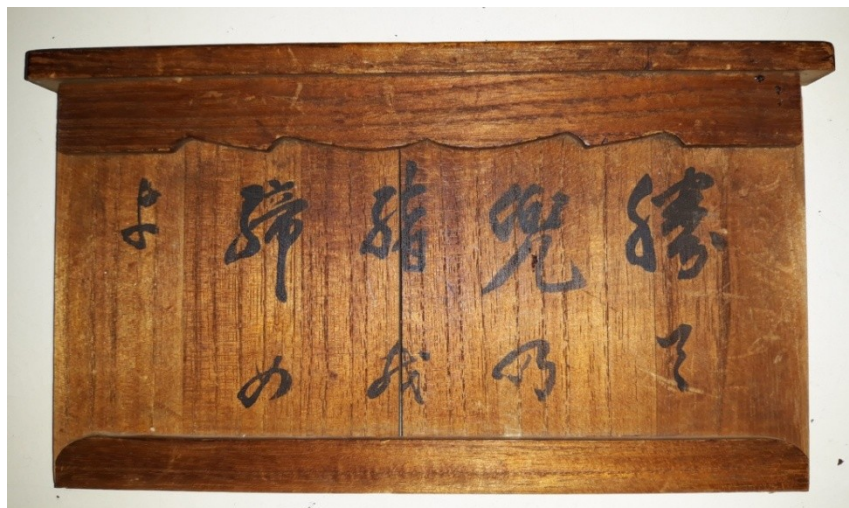 勝て
兜の
緒を
締め
よ